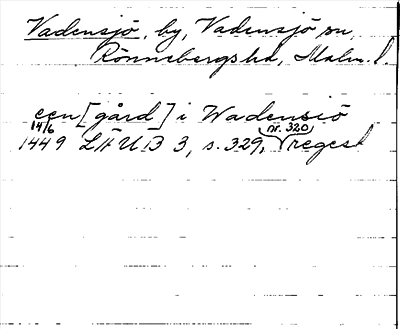 Vadensjö, by, Vadensjö sn,
Rönnebergs hd, Malm. l.
een [gård] i Wadensiö
14/6
1449 LÄUB 3, s. 329, nr. 320, regest